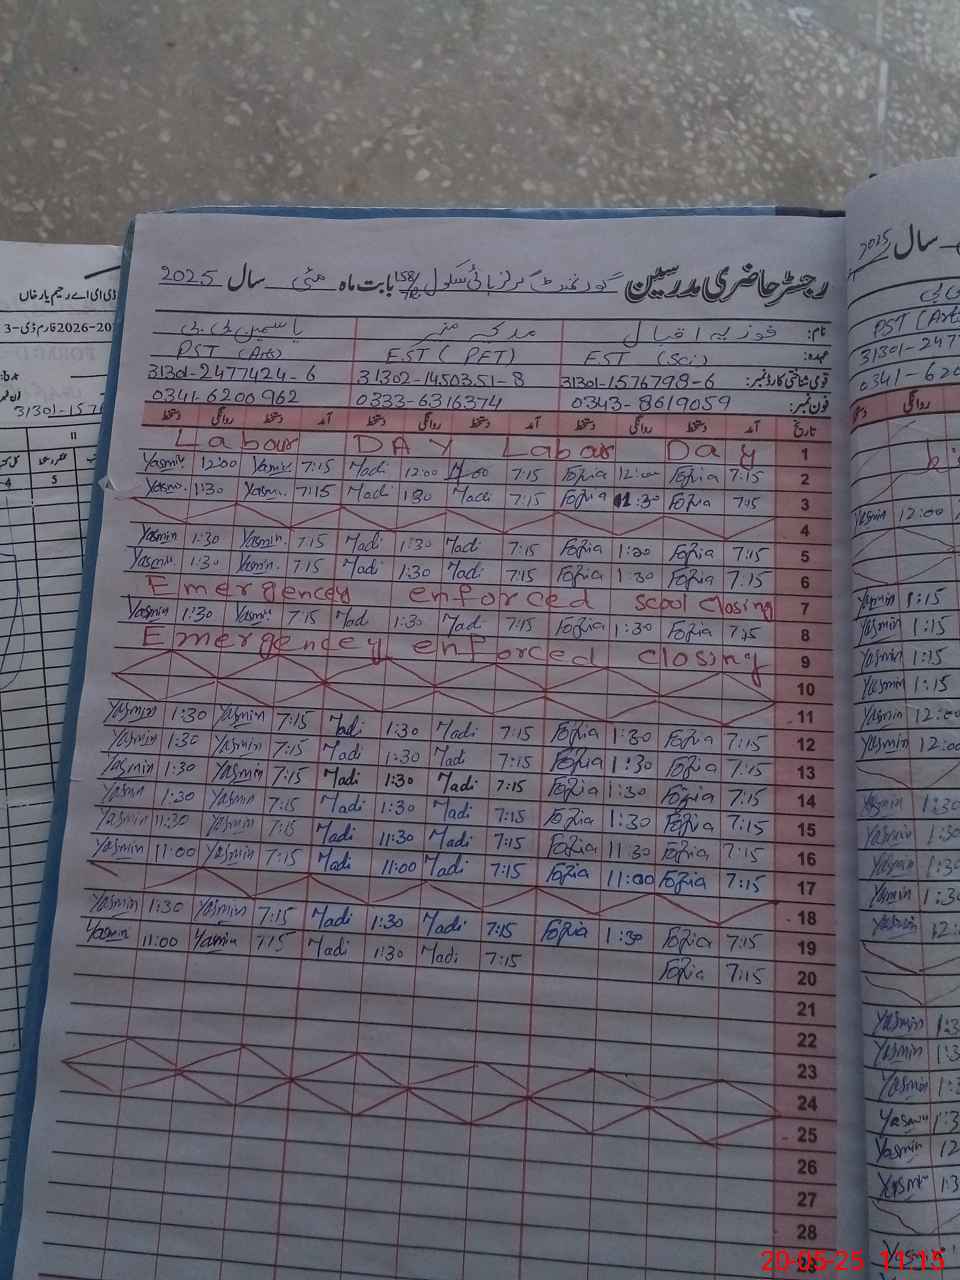 رجسٹر حاضری مدرسین گورنمنٹ گرلز ہائی سکول 158/P بابت ماہ مئی سال 2025
نام: فوزیہ اقبال مدیحہ منیر یاسمین بی بی
عہدہ: EST (Sci) EST (PET) PST (Arts)
قومی شناختی کارڈ نمبر: 31301-1576798-6 31302-1450351-8 31301-2477424-6
فون نمبر: 0343-8619059 0333-6316374 0341-6200962
تاریخ آمد دستخط روانگی دستخط آمد دستخط روانگی دستخط آمد دستخط روانگی دستخط
Labour DAY Labour Day 1
Yasmin 12:00 Yasmin 7:15 Madi 12:00 7:15 Fozia 12:00 Fozia 7:15 2
Yasmin 1:30 Yasmin 7:15 Madi 1:30 Madi 7:15 Fozia 1:30 Fozia 7:15 3
4
Yasmin 1:30 Yasmin 7:15 Madi 1:30 Madi 7:15 Fozia 1:30 Fozia 7:15 5
Yasmin 1:30 Yasmin 7:15 Madi 1:30 Madi 7:15 Fozia 1:30 Fozia 7:15 6
Emergencey enforced scool closing 7
Yasmin 1:30 Yasmin 7:15 Madi 1:30 Madi 7:15 Fozia 1:30 Fozia 7:15 8
Emergencey enforced closing 9
10
11
Yasmin 1:30 Yasmin 7:15 Madi 1:30 Madi 7:15 Fozia 1:30 Fozia 7:15 12
Yasmin 1:30 Yasmin 7:15 Madi 1:30 Madi 7:15 Fozia 1:30 Fozia 7:15 13
Yasmin 1:30 Yasmin 7:15 Madi 1:30 Madi 7:15 Fozia 1:30 Fozia 7:15 14
Yasmin 1:30 Yasmin 7:15 Madi 1:30 Madi 7:15 Fozia 1:30 Fozia 7:15 15
Yasmin 11:30 Yasmin 7:15 Madi 11:30 Madi 7:15 Fozia 11:30 Fozia 7:15 16
Yasmin 11:00 Yasmin 7:15 Madi 11:00 Madi 7:15 Fozia 11:00 Fozia 7:15 17
18
Yasmin 1:30 Yasmin 7:15 Madi 1:30 Madi 7:15 Fozia 1:30 Fozia 7:15 19
Yasmin 11:00 Yasmin 7:15 Madi 1:30 Madi 7:15 Fozia 7:15 20
21
22
23
24
25
26
27
28
سال 2025
PST (Arts
31301-247
0341-620
روانگی دستخط
Yasmin 12:00
Yasmin 1:15
Yasmin 1:15
Yasmin 1:15
Yasmin 1:15
Yasmin 12:00
Yasmin 12:00
Yasmin 1:30
Yasmin 1:30
Yasmin 1:30
Yasmin 1:30
Yasmin 12:
Yasmin 1:3
Yasmin 1:3
Yasmin 1:3
Yasmin 1:3
Yasmin 12
Yasmin 1:3
Yasmin
ڈی ای اے رحیم یار خان
31301-1576
20-05-25 11:15